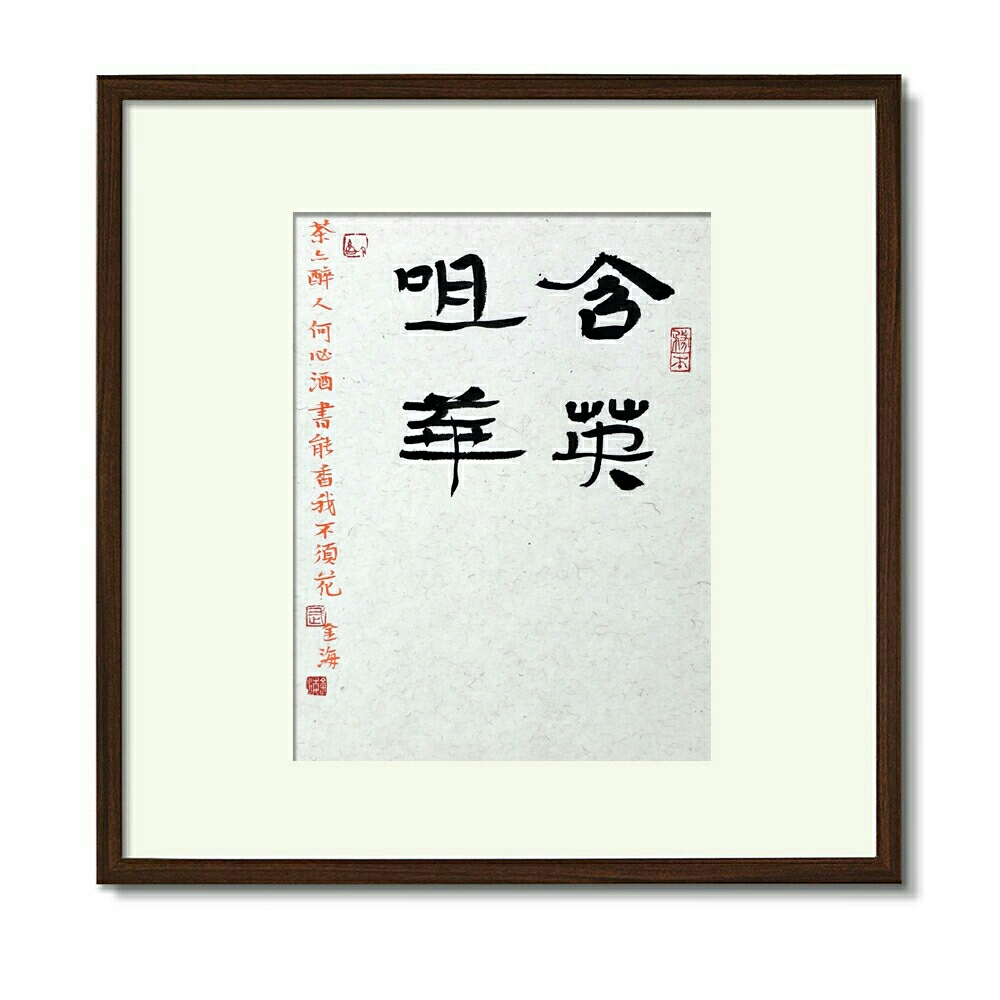 含英
咀華
茶亦醉人何必酒書能香我不須花
金海